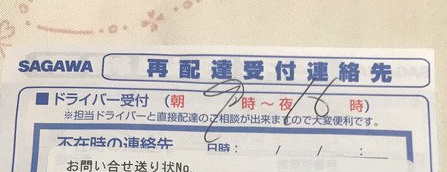 SAGAWA 再配達受付連絡先
■ドライバー受付 (朝 時～夜 時)
※担当ドライバーと直接配達のご相談が出来ますので大変便利です。
不在時の連絡先 日時: / / :
お問い合せ送り状No